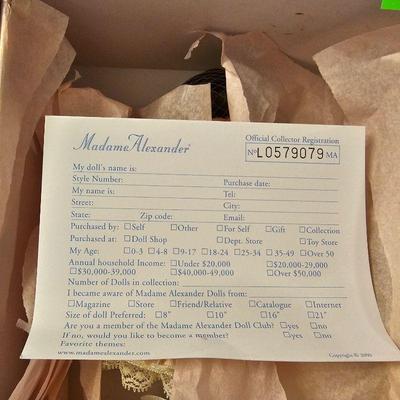 Madame Alexander®
Official Collector Registration
No L0579079 MA
My doll's name is:
Style Number: Purchase date:
My name is: Tel:
Street: City:
State: Zip code: Email:
Purchased by: ☐Self ☐Other ☐For Self ☐Gift ☐Collection
Purchased at: ☐Doll Shop ☐Dept. Store ☐Toy Store
My Age: ☐0-3 ☐4-8 ☐9-17 ☐18-24 ☐25-34 ☐35-49 ☐Over 50
Annual household Income: ☐Under $20,000 ☐$20,000-29,000
☐$30,000-39,000 ☐$40,000-49,000 ☐Over $50,000
Number of Dolls in collection:
I became aware of Madame Alexander Dolls from:
☐Magazine ☐Store ☐Friend/Relative ☐Catalogue ☐Internet
Size of doll Preferred: ☐8" ☐10" ☐16" ☐21"
Are you a member of the Madame Alexander Doll Club? ☐yes ☐no
If no, would you like to become a member? ☐yes ☐no
Favorite themes:
www.madamealexander.com Copyright ©